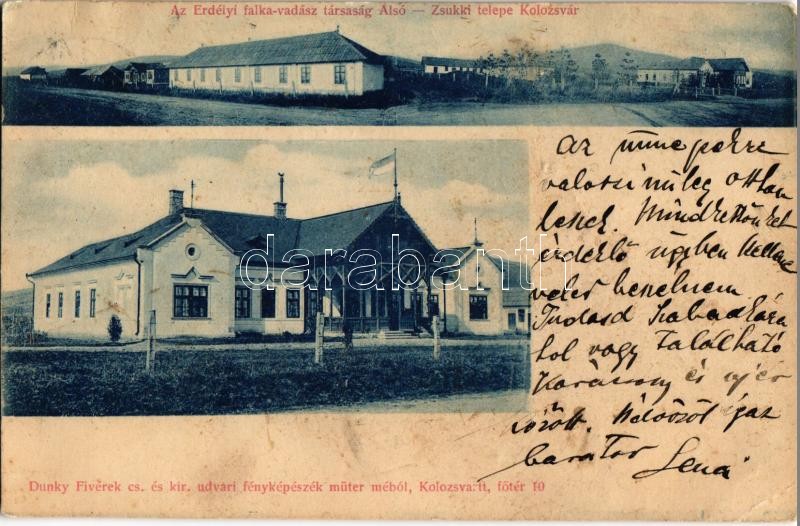 Az Erdélyi falka-vadász társaság Alsó — Zsukki telepe Kolozsvár
az ünnepekre
valószinüleg otthon
leszek. Mindkettőnket
érdeklő ügyben kellene
veled beszélnem
Tudasd szabadkán
hol vagy található
Karácsony és ujév
között. Üdvözöl igaz
barátod Jenő
darabanth.com
Dunky Fivérek cs. és kir. udvari fényképészék müter méből, Kolozsvártt, főtér 10